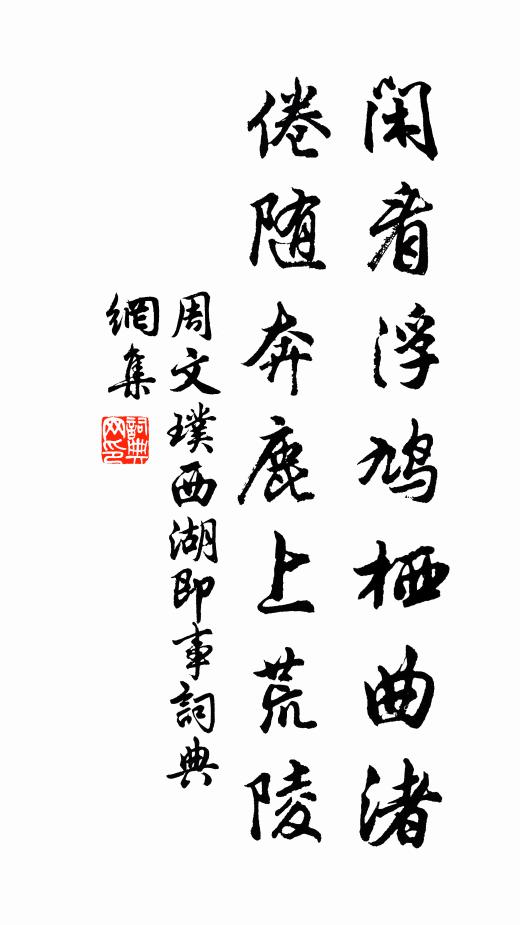 闲看浮鸠栖曲渚
倦随奔鹿上荒陵
周文璞西湖即事詞典
網集
詞典
网印